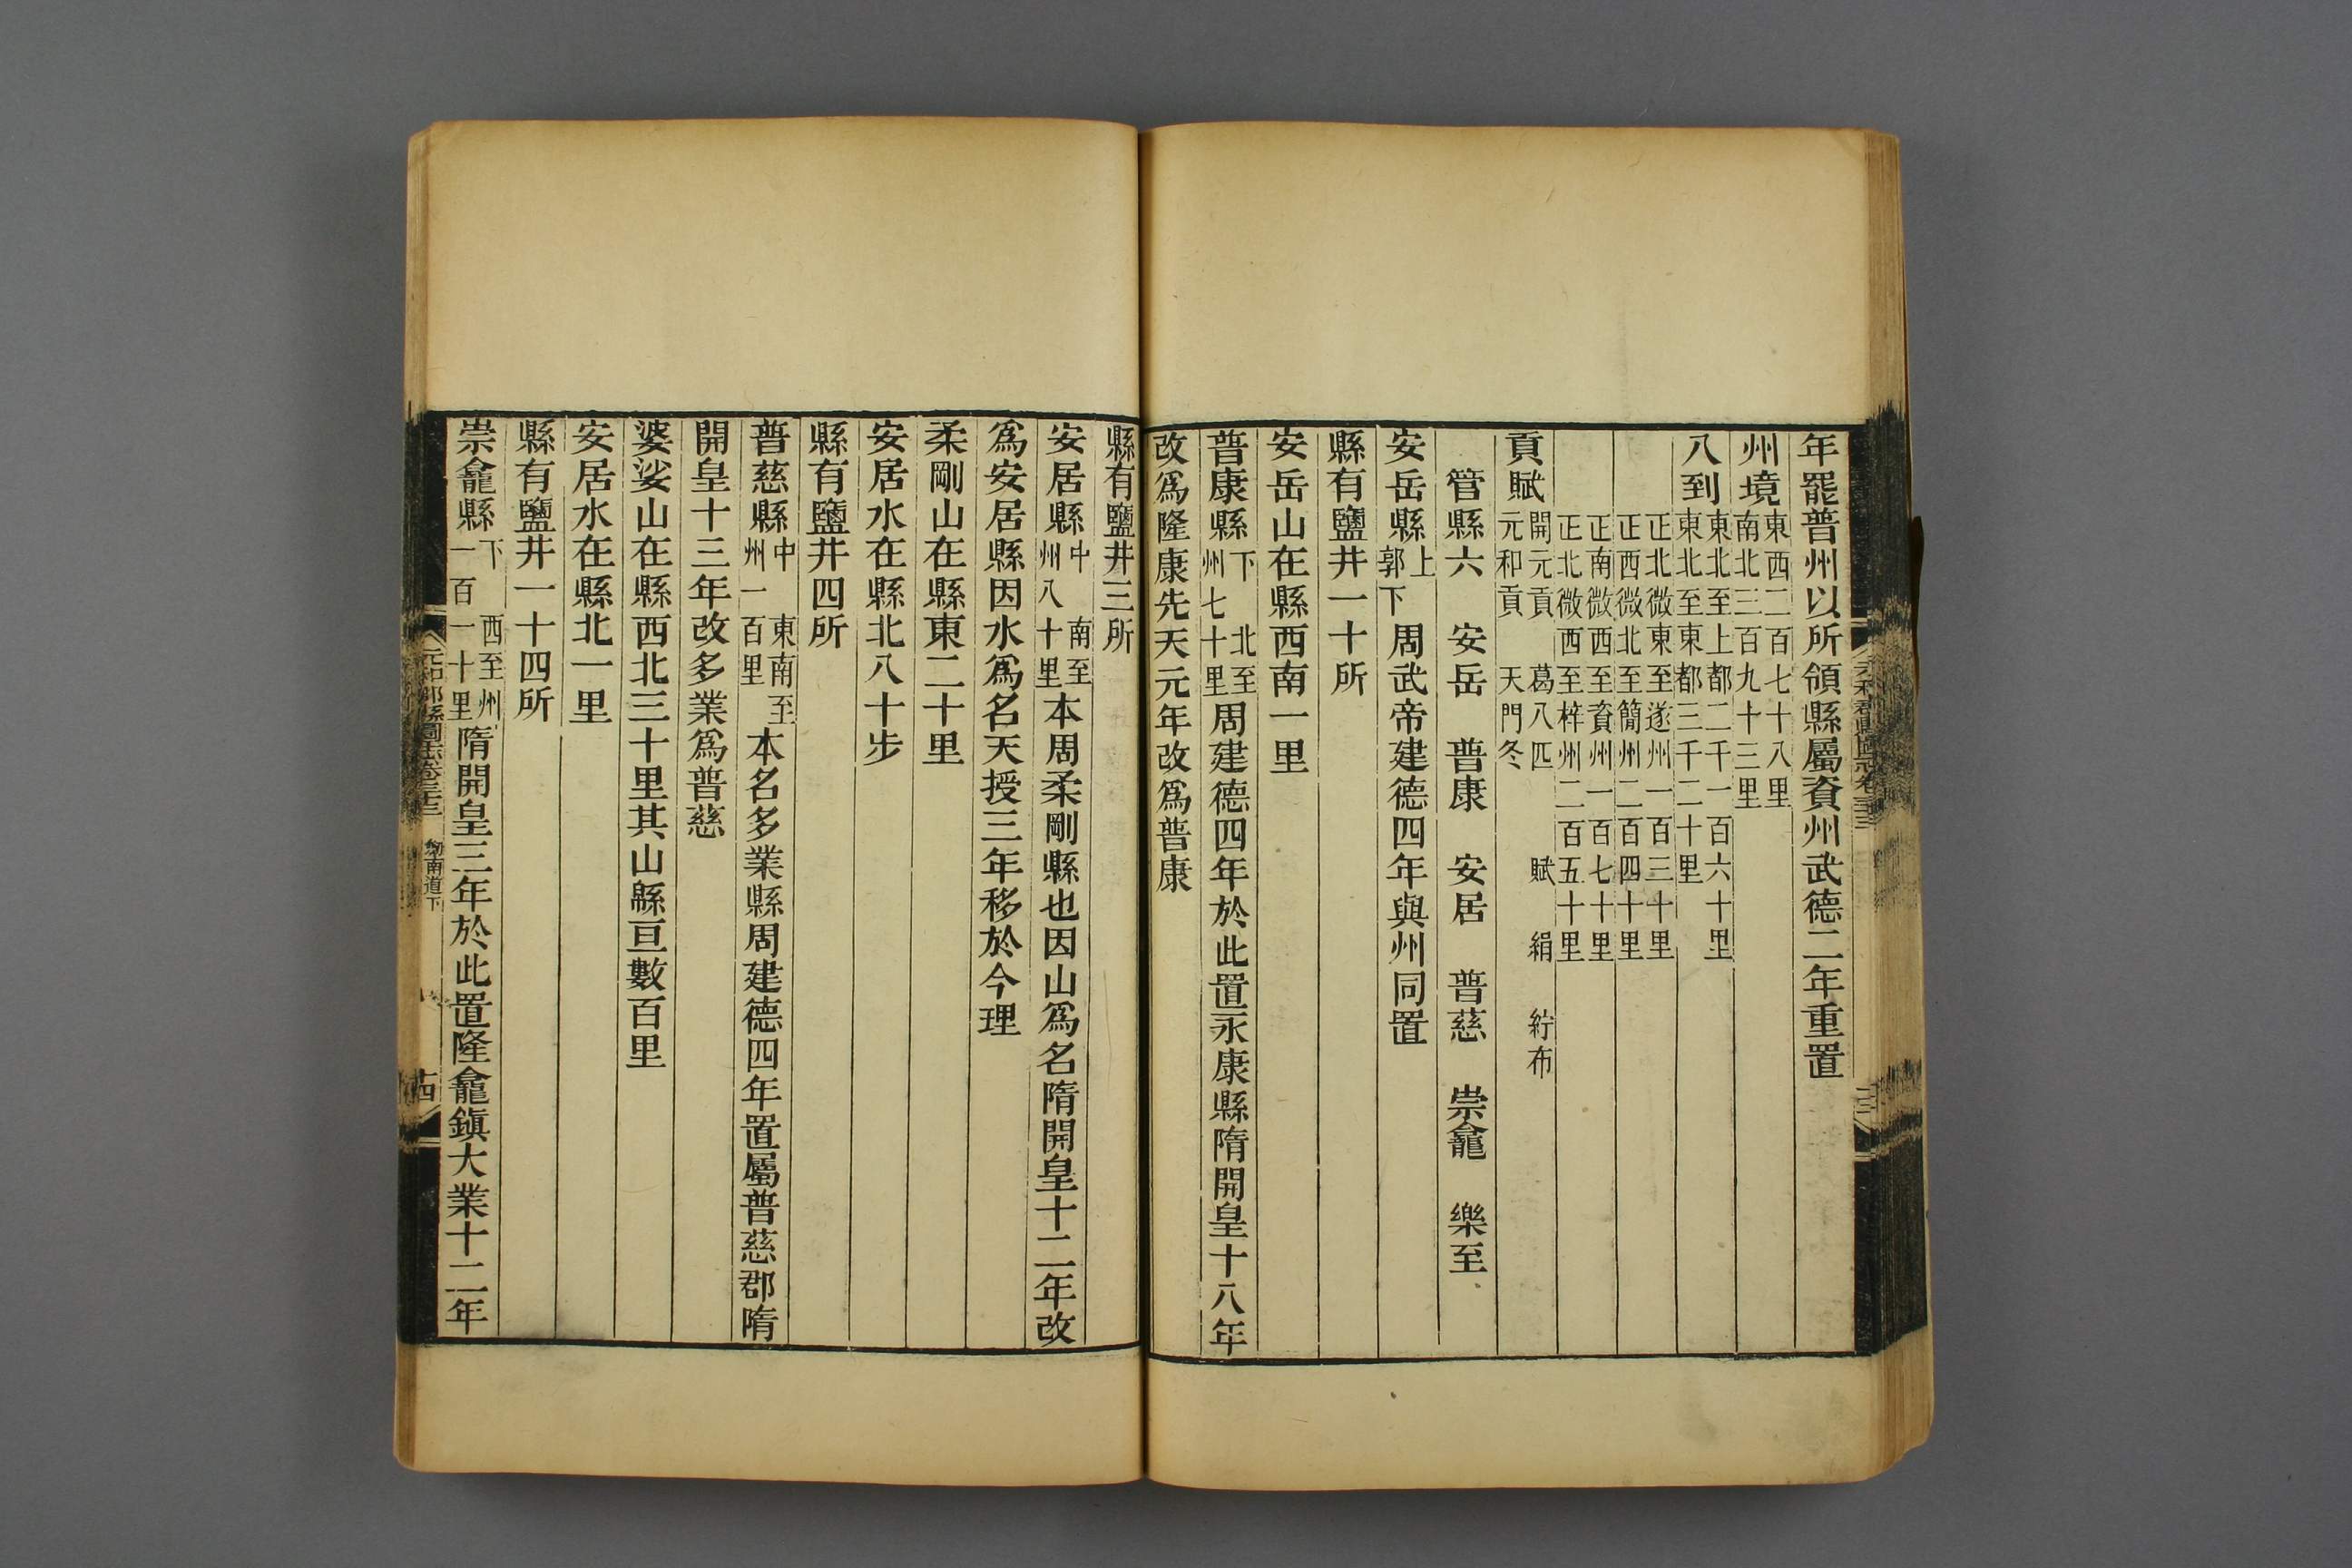 年罷普州以所領縣屬資州武德二年重置
州境東西二百七十八里
南北三百九十三里
八到東北至上都二千一百六十里
東北至東都三千二十里
正北微東至遂州一百三十里
正西微北至簡州二百四十里
正南微西至資州一百七十里
正北微西至梓州二百五十里
貢賦開元貢 葛八匹 賦 絹 紵布
元和貢 天門冬
管縣六 安岳 普康 安居 普慈 崇龕 樂至
安岳縣上
郭下周武帝建德四年與州同置
縣有鹽井一十所
安岳山在縣西南一里
普康縣下 北至
州七十里周建德四年於此置永康縣隋開皇十八年
改爲隆康先天元年改爲普康
縣有鹽井三所
安居縣中 南至
州八十里本周柔剛縣也因山爲名隋開皇十二年改
爲安居縣因水爲名天授三年移於今理
柔剛山在縣東二十里
安居水在縣北八十步
縣有鹽井四所
普慈縣中 東南至
州一百里本名多業縣周建德四年置屬普慈郡隋
開皇十三年改多業爲普慈
婆娑山在縣西北三十里其山緜亘數百里
安居水在縣北一里
縣有鹽井一十四所
崇龕縣下 西至州
一百一十里隋開皇三年於此置隆龕鎭大業十二年
元和郡縣圖志卷三十三 劒南道下 十四